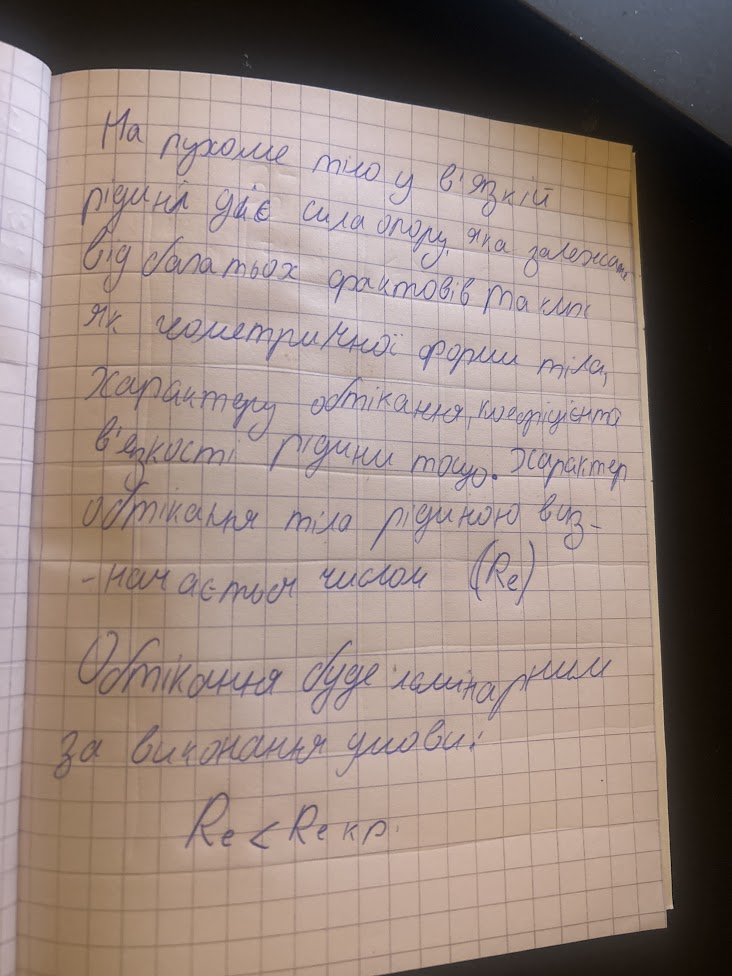 На рухоме тіло у в'язкій
рідині діє сила опору, яка залежить
від багатьох фактовів таких
як геометричної форми тіла,
характеру обтікання, коефіцієнта
в'язкості рідини тощо. Характер
обтікання тіла рідиною виз-
-начається числом (Re)
Обтікання буде ламінарним
за виконання умови:
Re < Re кр.